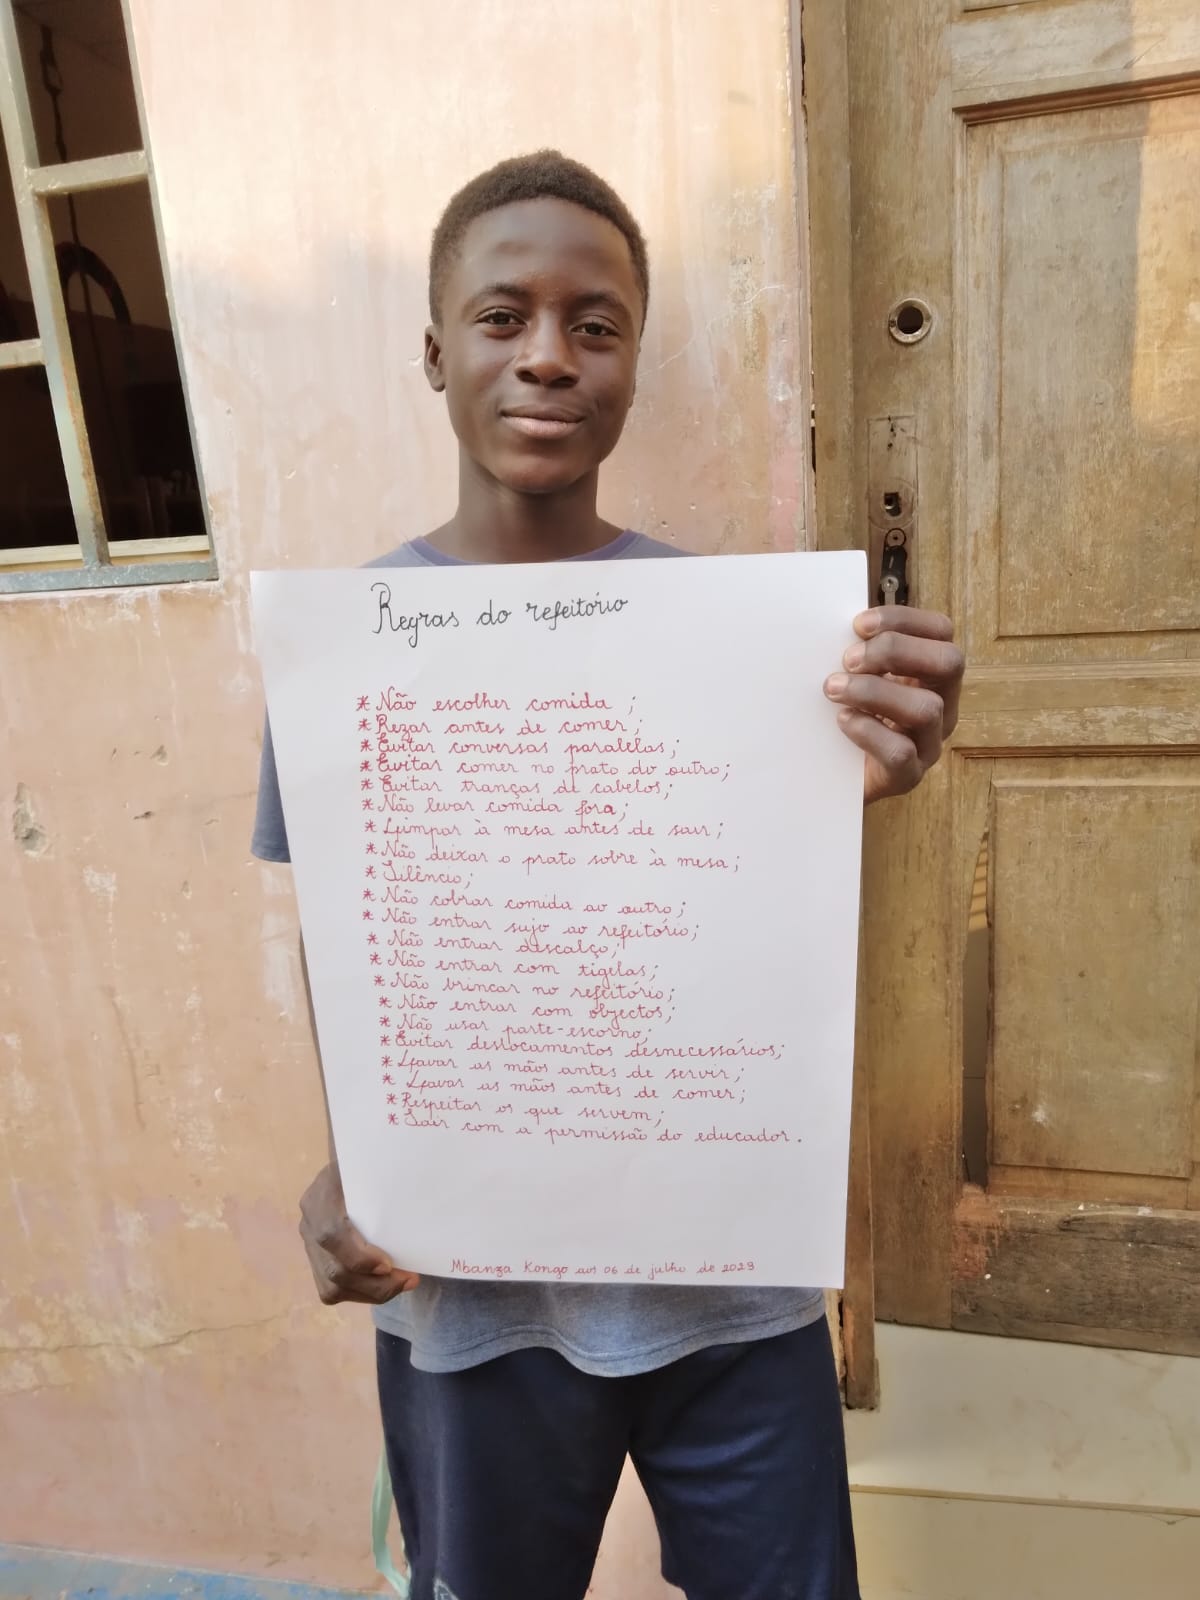 Regras do refeitório
* Não escolher comida ;
* Rezar antes de comer;
* Evitar conversas paralelas;
* Evitar comer no prato do outro;
* Evitar tranças de cabelos;
* Não levar comida fora;
* Limpar à mesa antes de sair;
* Não deixar o prato sobre à mesa;
* Silêncio;
* Não cobrar comida ao outro;
* Não entrar sujo ao refeitório;
* Não entrar descalço;
* Não entrar com tigelas;
* Não brincar no refeitório;
* Não entrar com objectos;
* Não usar parte-escorno;
* Evitar deslocamentos desnecessários;
* Lavar as mãos antes de servir;
* Lavar as mãos antes de comer;
* Respeitar os que servem;
* Sair com a permissão do educador.
Mbanza Kongo aos 06 de julho de 2023